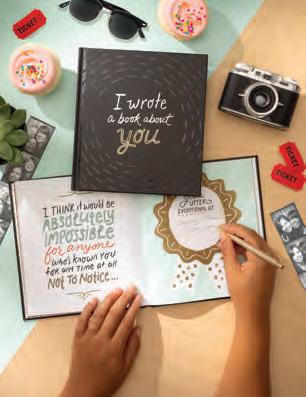 TICKET
I wrote
a book about
you
TICKET
TICKET
I THINK it would be
ABSOLUTELY
IMPOSSIBLE
for anyone
who's known you
for any time at all
NOT TO NOTICE...
UTTERLY
EXCEPTIONAL AT